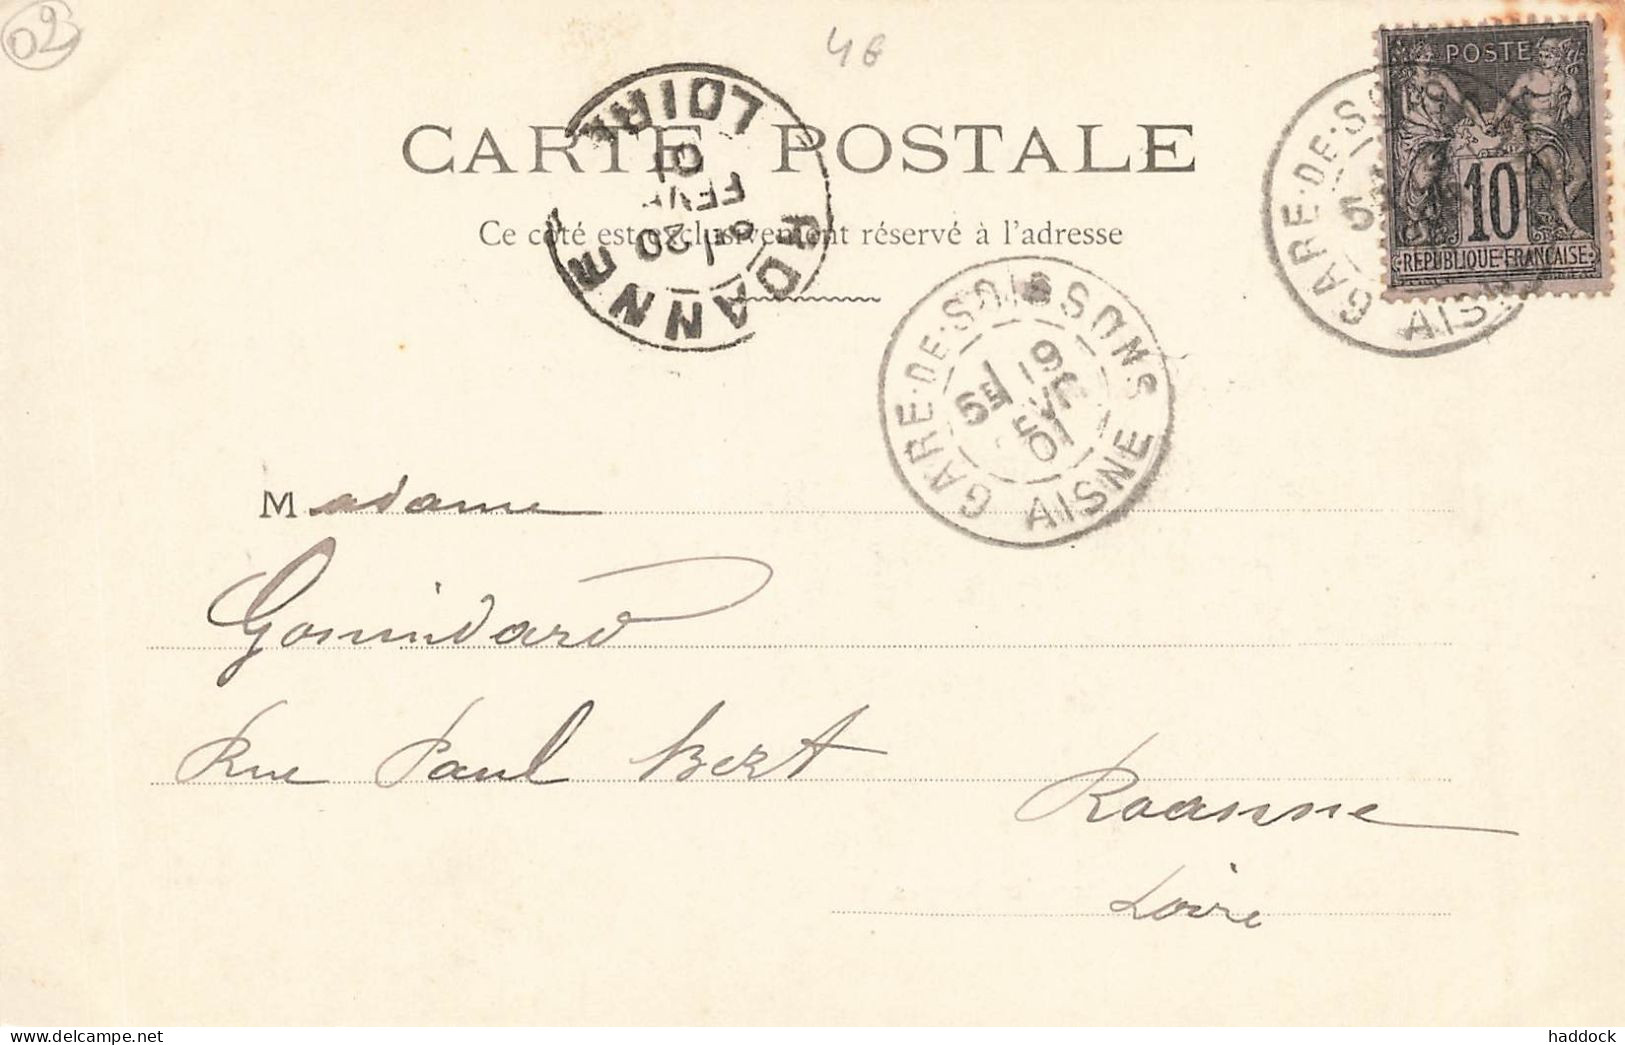 02
4€
CARTE POSTALE
Ce côté est exclusivement réservé à l'adresse
POSTE
10
REPUBLIQUE FRANCAISE
GARE-DE-SO
5
AISNE
ROANNE
LOIRE
6
20
FEVR
01
GARE-DE-SOISSONS
5E
19
FEVR
01
AISNE
Madame
Gonindard
Rue Paul Bert
Roanne
Loire
haddock